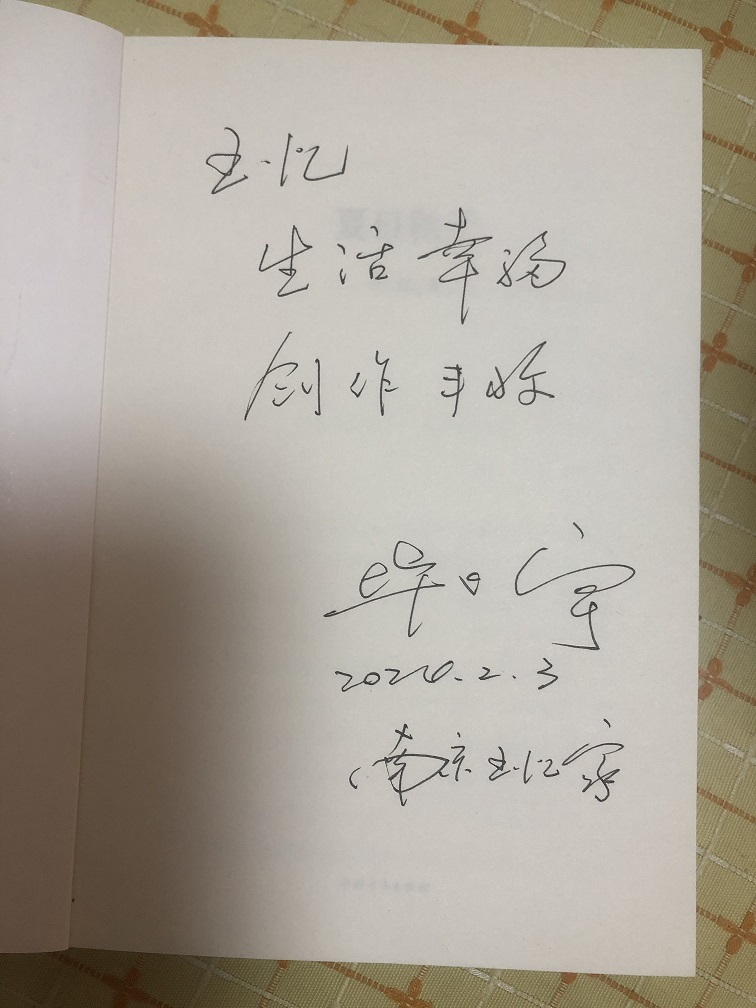 王忆
生活幸福
创作丰
毕飞宇
2024.2.3
南京王忆家